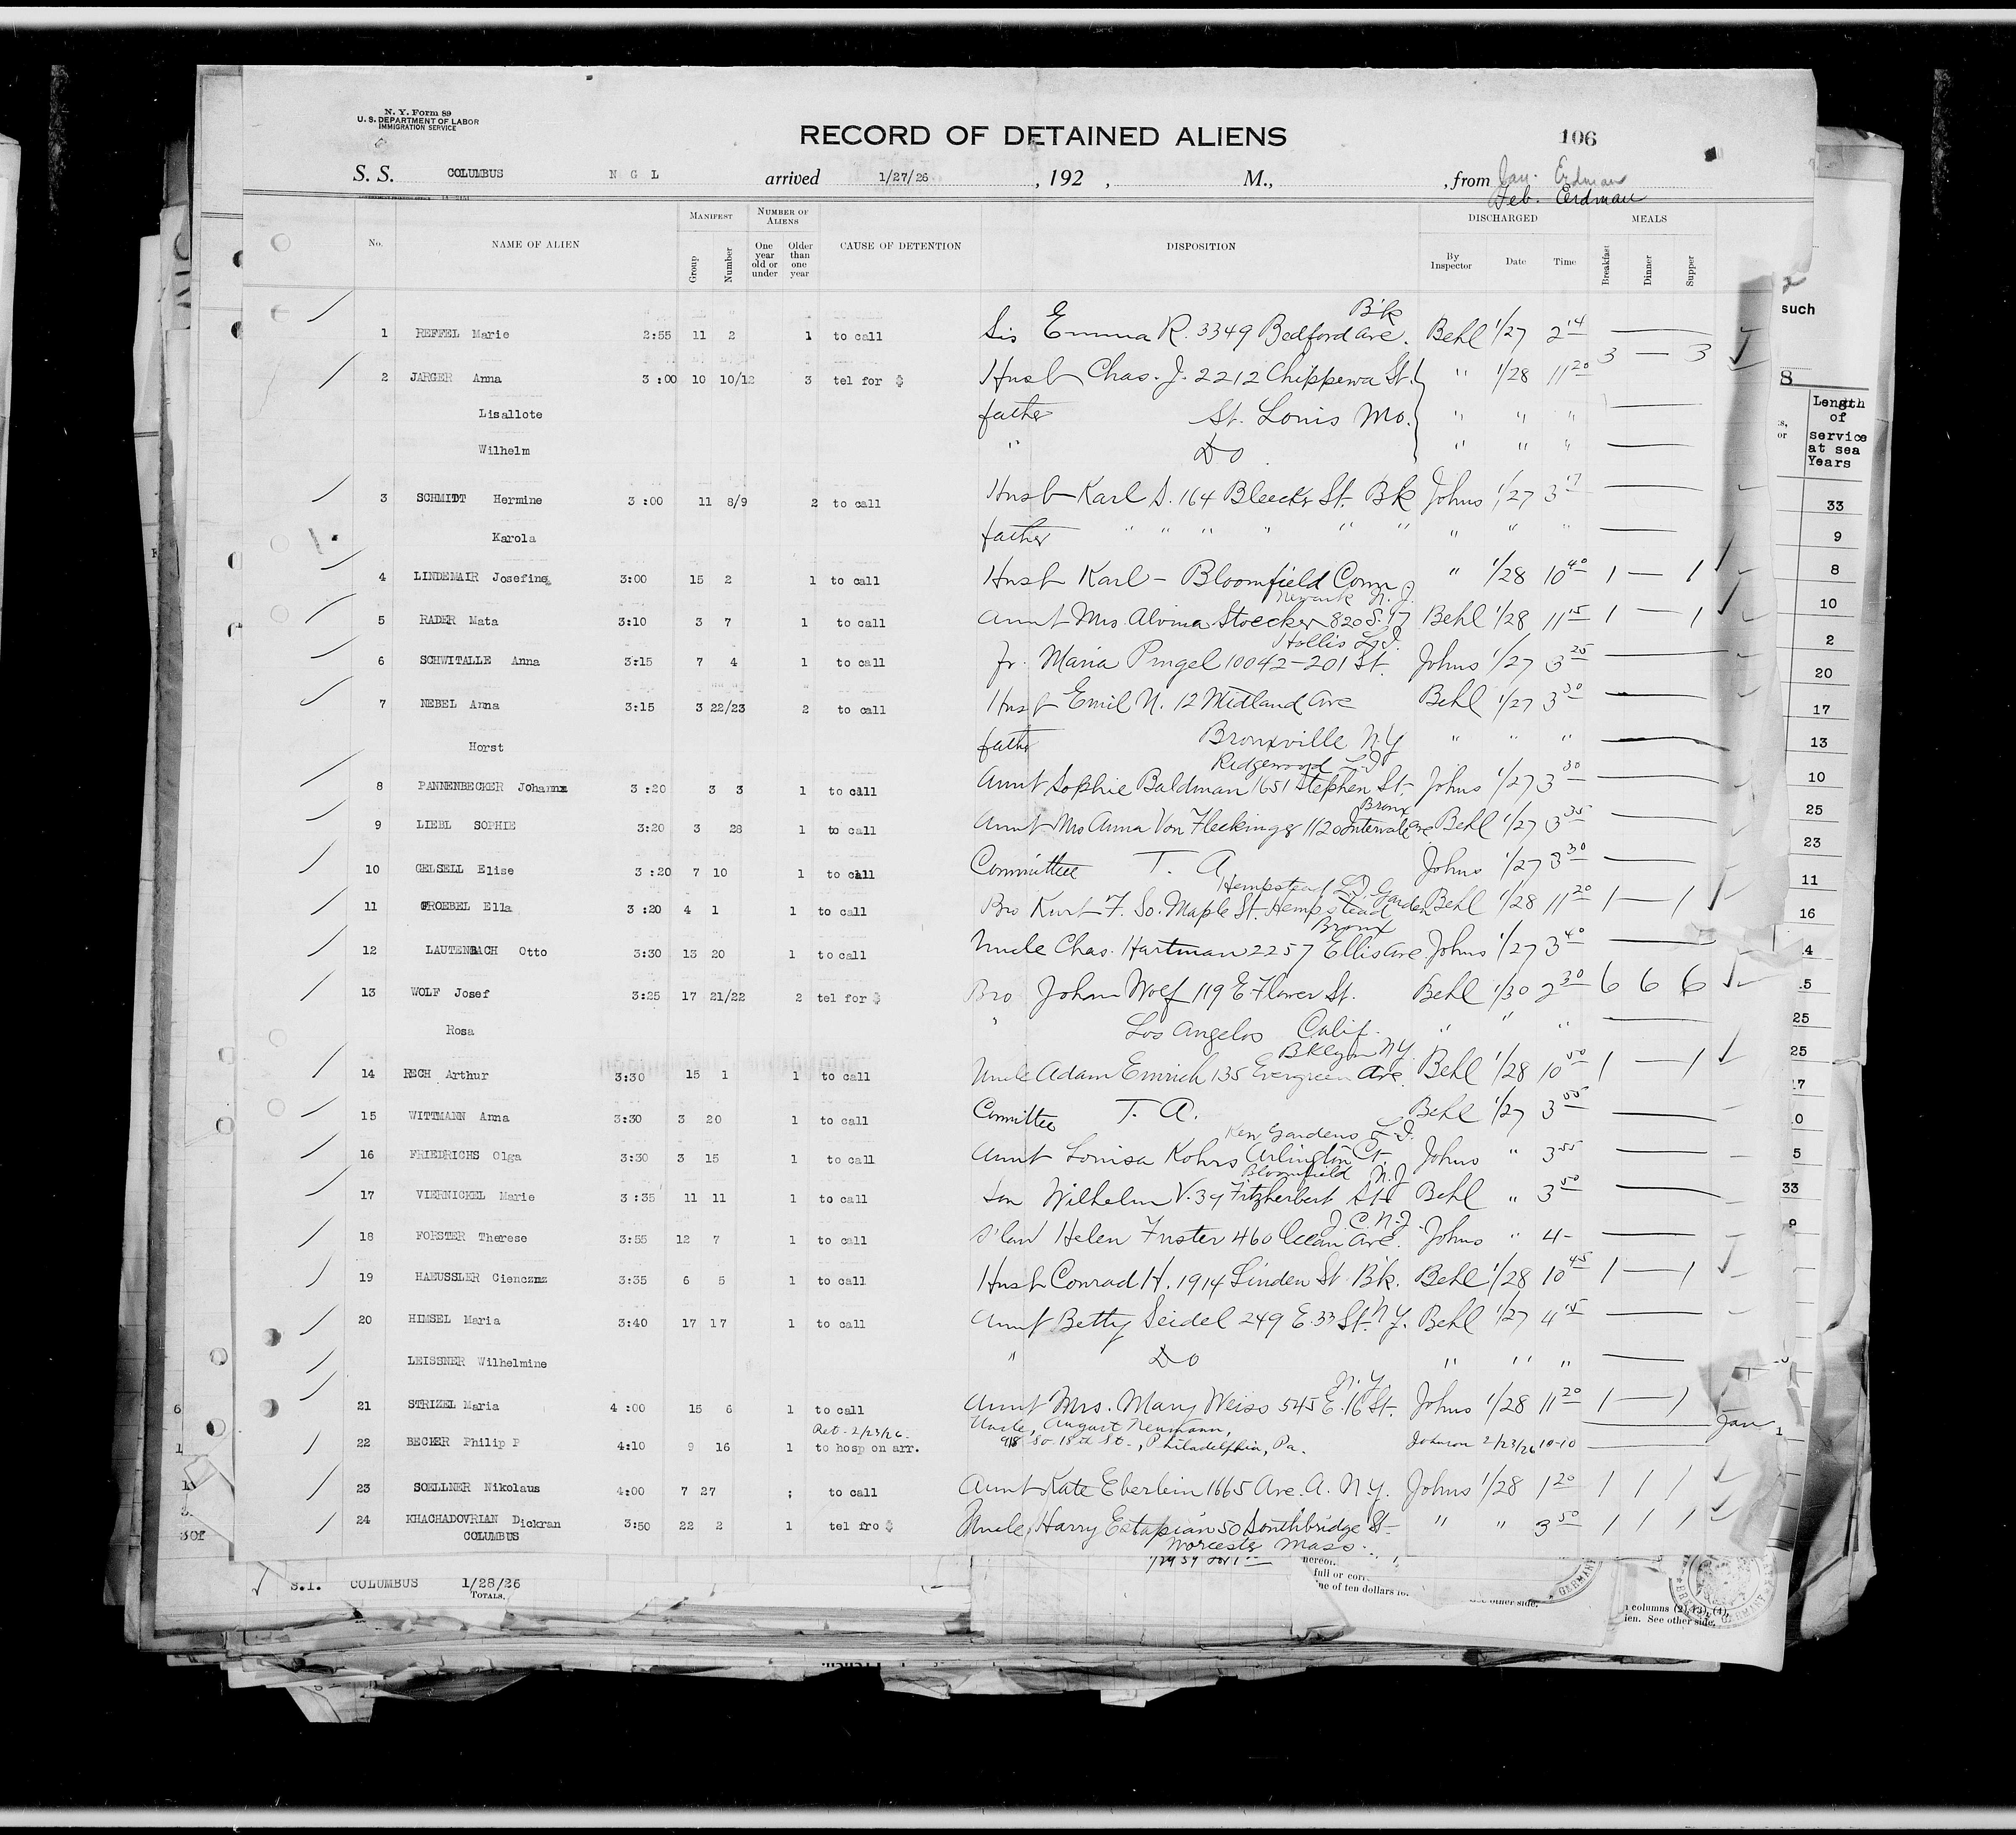 N. Y. Form 89
U. S. DEPARTMENT OF LABOR
IMMIGRATION SERVICE
RECORD OF DETAINED ALIENS 106
S. S. COLUMBUS N G L arrived 1/27/26 , 192 , M., , from Jan. Erdman
Feb. Erdman
No. NAME OF ALIEN MANIFEST Group Number NUMBER OF ALIENS One year old or under Older than one year CAUSE OF DETENTION DISPOSITION DISCHARGED By Inspector Date Time MEALS Breakfast Dinner Supper
Bk
1 REFFEL Marie 2:55 11 2 1 to call Sis Emma R. 3349 Bedford Ave. Behl 1/27 2 14
2 JARGER Anna 3:00 10 10/12 3 tel for $ Husb Chas. J. 2212 Chippewa St. " 1/28 11 20 3 — 3
Lisallote father St. Louis Mo. " " "
Wilhelm " Do " " "
3 SCHMIDT Hermine 3:00 11 8/9 2 to call Husb Karl S. 164 Bleecker St. Bk Johns 1/27 3 17
Karola father " " " " " " " " "
4 LINDEMAIR Josefine 3:00 15 2 1 to call Husb Karl - Bloomfield Conn " 1/28 10 40 1 — 1
Newark N.J.
5 RADER Mata 3:10 3 7 1 to call Aunt Mrs Alvina Stoecker 820 S. 17 Behl 1/28 11 15 1 — 1
Hollis L.I.
6 SCHWITALLE Anna 3:15 7 4 1 to call fr. Maria Pingel 10042-201 St. Johns 1/27 3 25
7 NEBEL Anna 3:15 3 22/23 2 to call Husb Emil N. 12 Midland Ave Behl 1/27 3 30
Horst father Bronxville N.Y " " "
Ridgewood L.I
8 PANNENBECKER Johanna 3:20 3 3 1 to call Aunt Sophie Baldman 1651 Stephen St. Johns 1/27 3 30
Bronx
9 LIEBL SOPHIE 3:20 3 28 1 to call Aunt Mrs Anna Von Fleckinger 1120 Intervale Ave Behl 1/27 3 35
10 GELSELL Elise 3:20 7 10 1 to call Committee T. A Johns 1/27 3 30
Hempstead L.I. Garden
11 FROEBEL Ella 3:20 4 1 1 to call Bro Kurt F. So. Maple St. Hempstead Behl 1/28 11 20 1 — 1
Bronx
12 LAUTENBACH Otto 3:30 13 20 1 to call Uncle Chas. Hartman 2257 Ellis Ave. Johns 1/27 3 40
13 WOLF Josef 3:25 17 21/22 2 tel for $ Bro Johan Wolf 119 E. Flower St. Behl 1/30 2 30 6 6 6
Rosa " Los Angelos Calif. " " "
Bklyn NY
14 RECH Arthur 3:30 15 1 1 to call Uncle Adam Emrich 135 Evergreen Ave. Behl 1/28 10 50 1 — 1
15 WITTMANN Anna 3:30 3 20 1 to call Committee T. A. Behl 1/27 3 00
Kew Gardens L.I.
16 FRIEDRICHS Olga 3:30 3 15 1 to call Aunt Louisa Kohrs Arlington Ct Johns " 3 55
Bloomfield N.J
17 VIERNICKEL Marie 3:35 11 11 1 to call Son Wilhelm V. 39 Fitzherbert St Behl " 3 50
J.C. N.J.
18 FORSTER Therese 3:55 12 7 1 to call s'law Helen Fuster 460 Ocean Ave. Johns " 4-
19 HAEUSSLER 3:35 6 5 1 to call Husb Conrad H. 1914 Linden St Bk. Behl 1/28 10 45 1 — 1
20 HIMSEL Maria 3:40 17 17 1 to call Aunt Betty Seidel 249 E. 33 St. N.Y. Behl 1/27 4 15
LEISSNER Wilhelmine " Do " " "
N.Y.
21 STRIZEL Maria 4:00 15 6 1 to call Aunt Mrs. Mary Weiss 545 E. 16 St. Johns 1/28 11 20 1 — 1
Ret. 2/23/26. Uncle, August Neumann, Jan
22 BECKER Philip P 4:10 9 16 1 to hosp on arr. 918 So. 18th St., Philadelphia, Pa. Johnson 2/23/26 10-10
23 SOELLNER Nikolaus 4:00 7 27 ; to call Aunt Kate Eberlein 1665 Ave. A. N.Y. Johns 1/28 1 20 1 1 1
24 KHACHADOVRIAN Dickran 3:50 22 2 1 tel fro $ Uncle Harry Estapian 50 Southbridge St- " " 3 50 1 1 1
COLUMBUS Worcester Mass.
S.I. COLUMBUS 1/28/26
TOTALS,
such
8
Length
of
service
at sea
Years
33
9
8
10
2
20
17
13
10
25
23
11
16
.4
.5
25
25
33
hereon.
full or
ne of ten dollars
see other side.
columns (2), (3), (4),
ien. See other side.